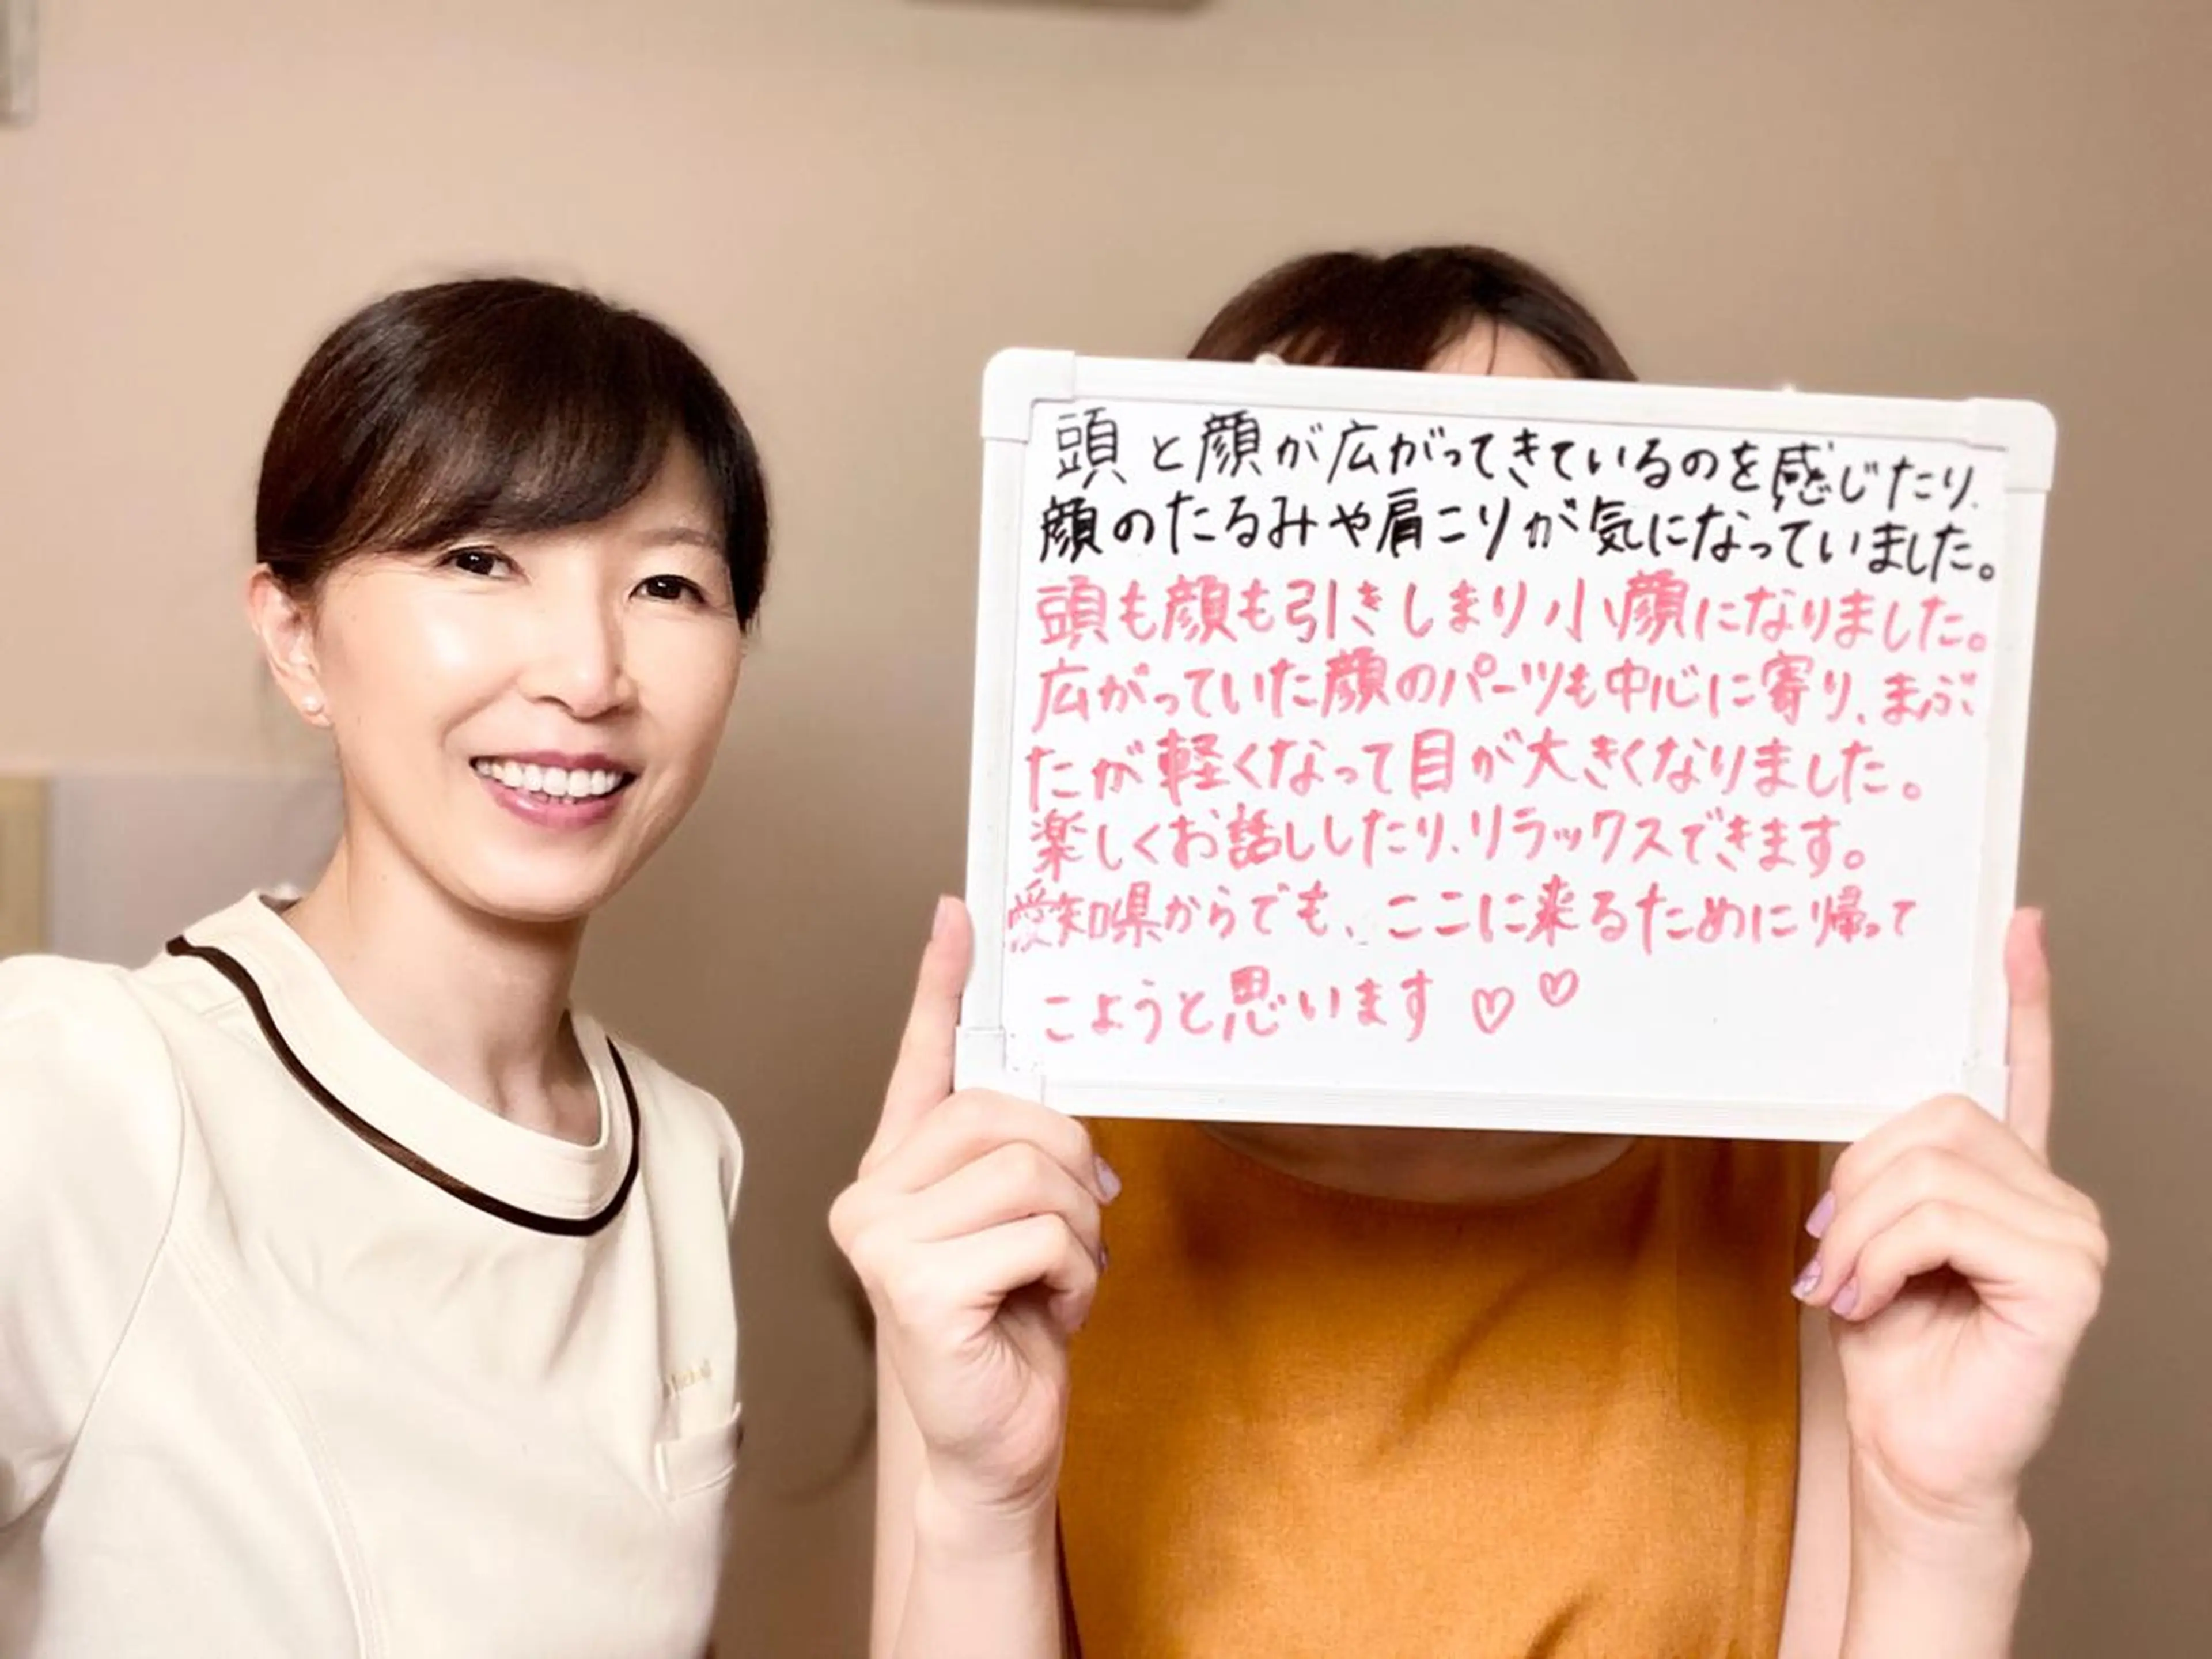 頭と顔が広がってきているのを感じたり、
顔のたるみや肩こりが気になっていました。
頭も顔も引きしまり小顔になりました。
広がっていた顔のパーツも中心に寄り、まぶ
たが軽くなって目が大きくなりました。
楽しくお話ししたり、リラックスできます。
愛知県からでも、ここに来るために帰って
こようと思います♡♡